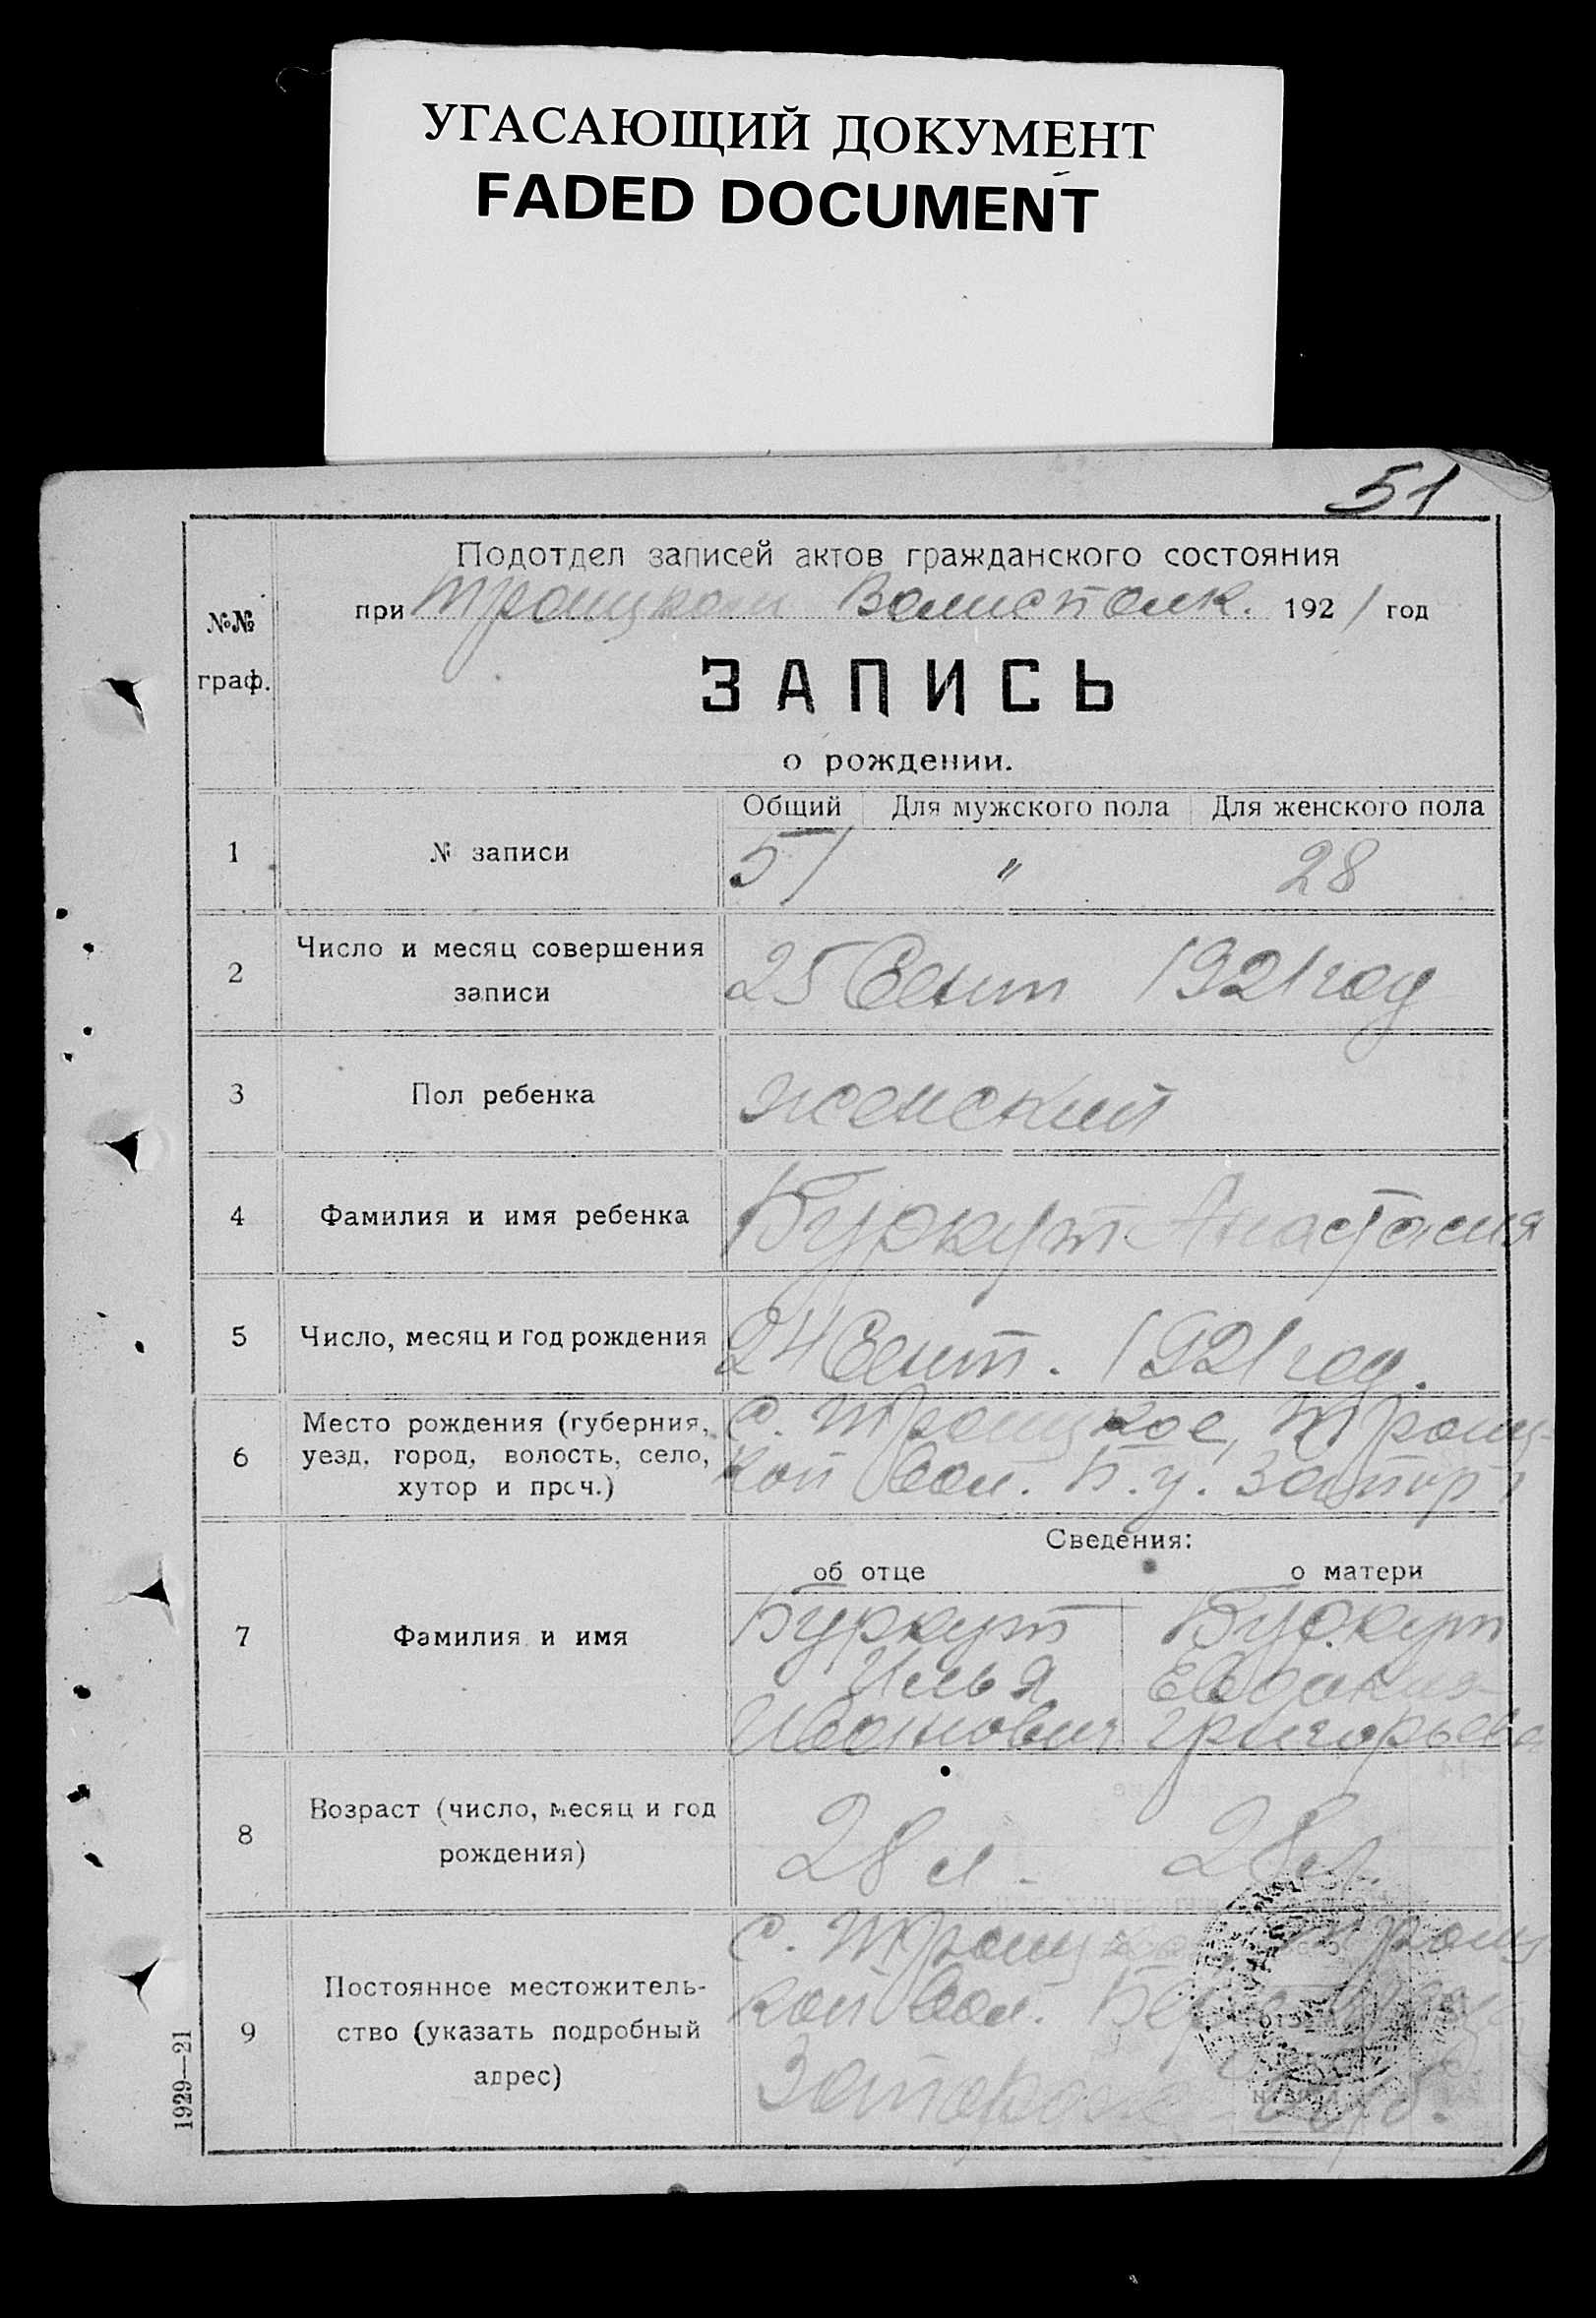 УГАСАЮЩИЙ ДОКУМЕНТ
FADED DOCUMENT
51
Подотдел записей актов гражданского состояния
№№ граф.
при Троицком Волисполк. 1921 год
ЗАПИСЬ
о рождении.
Общий Для мужского пола Для женского пола
1 № записи 51 " 28
2 Число и месяц совершения записи 25 Сент 1921 год
3 Пол ребенка женский
4 Фамилия и имя ребенка Буркут Анастасия
5 Число, месяц и год рождения 24 Сент. 1921 год.
6 Место рождения (губерния, уезд, город, волость, село, хутор и проч.) с. Троицкое, Троиц-
кой Вол. Б. у. Запор
Сведения:
об отце о матери
7 Фамилия и имя Буркут Буркут
Илья Евдокия
Иванович Григорьева
8 Возраст (число, месяц и год рождения) 28 л. 28 л.
9 Постоянное местожитель-
ство (указать подробный
адрес)
с. Троицкое Троиц
кой Вол.
Запорож. губ.
1929—21